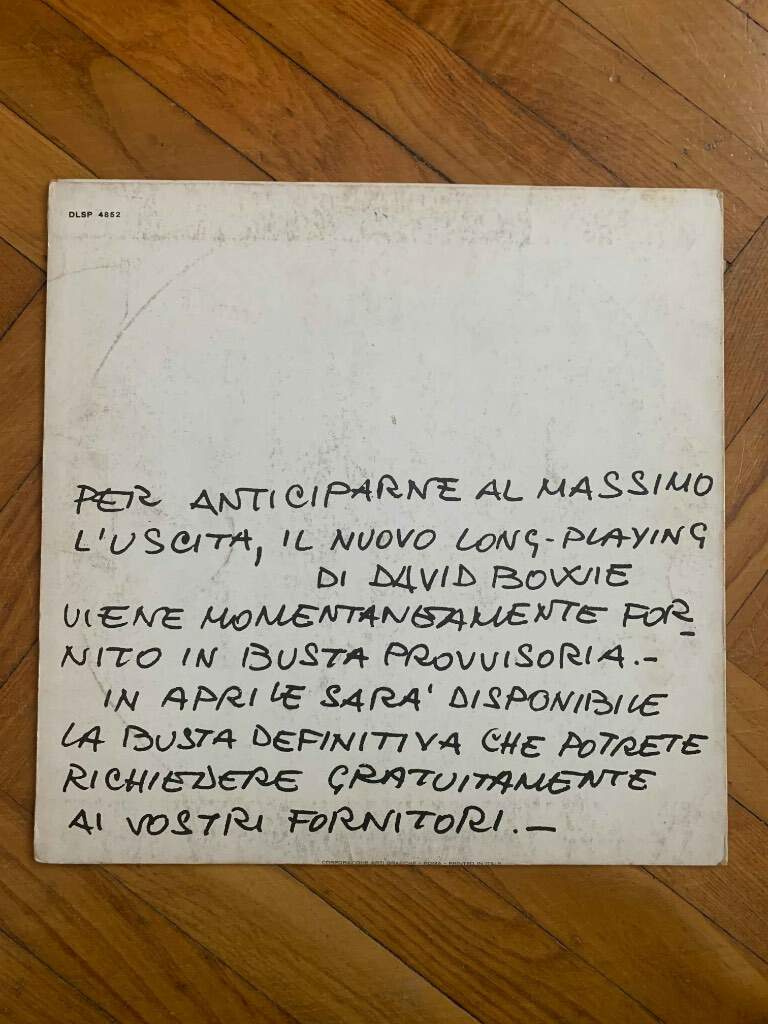 DLSP 4852
PER ANTICIPARNE AL MASSIMO
L'USCITA, IL NUOVO LONG-PLAYING
DI DAVID BOWIE
VIENE MOMENTANEAMENTE FOR-
NITO IN BUSTA PROVVISORIA.-
IN APRILE SARA' DISPONIBILE
LA BUSTA DEFINITIVA CHE POTRETE
RICHIEDERE GRATUITAMENTE
AI VOSTRI FORNITORI.-
ARTI GRAFICHE - ROMA - PRINTED IN ITALY